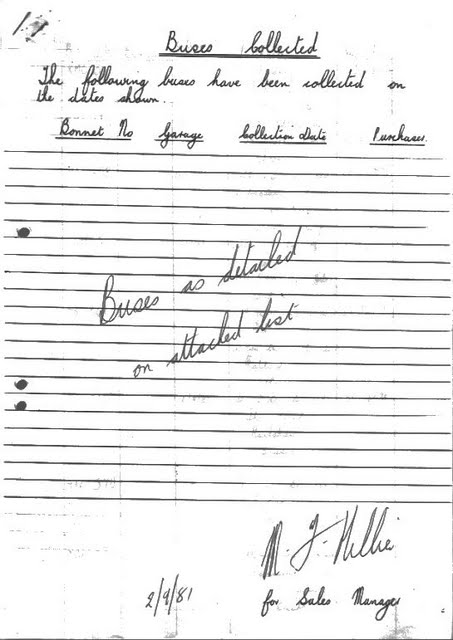 Buses Collected
The following buses have been collected on
the dates shown.
Bonnet No Garage Collection Date Purchaser
Buses as detailed
on attached list
M. J.
2/9/81
for Sales Manager